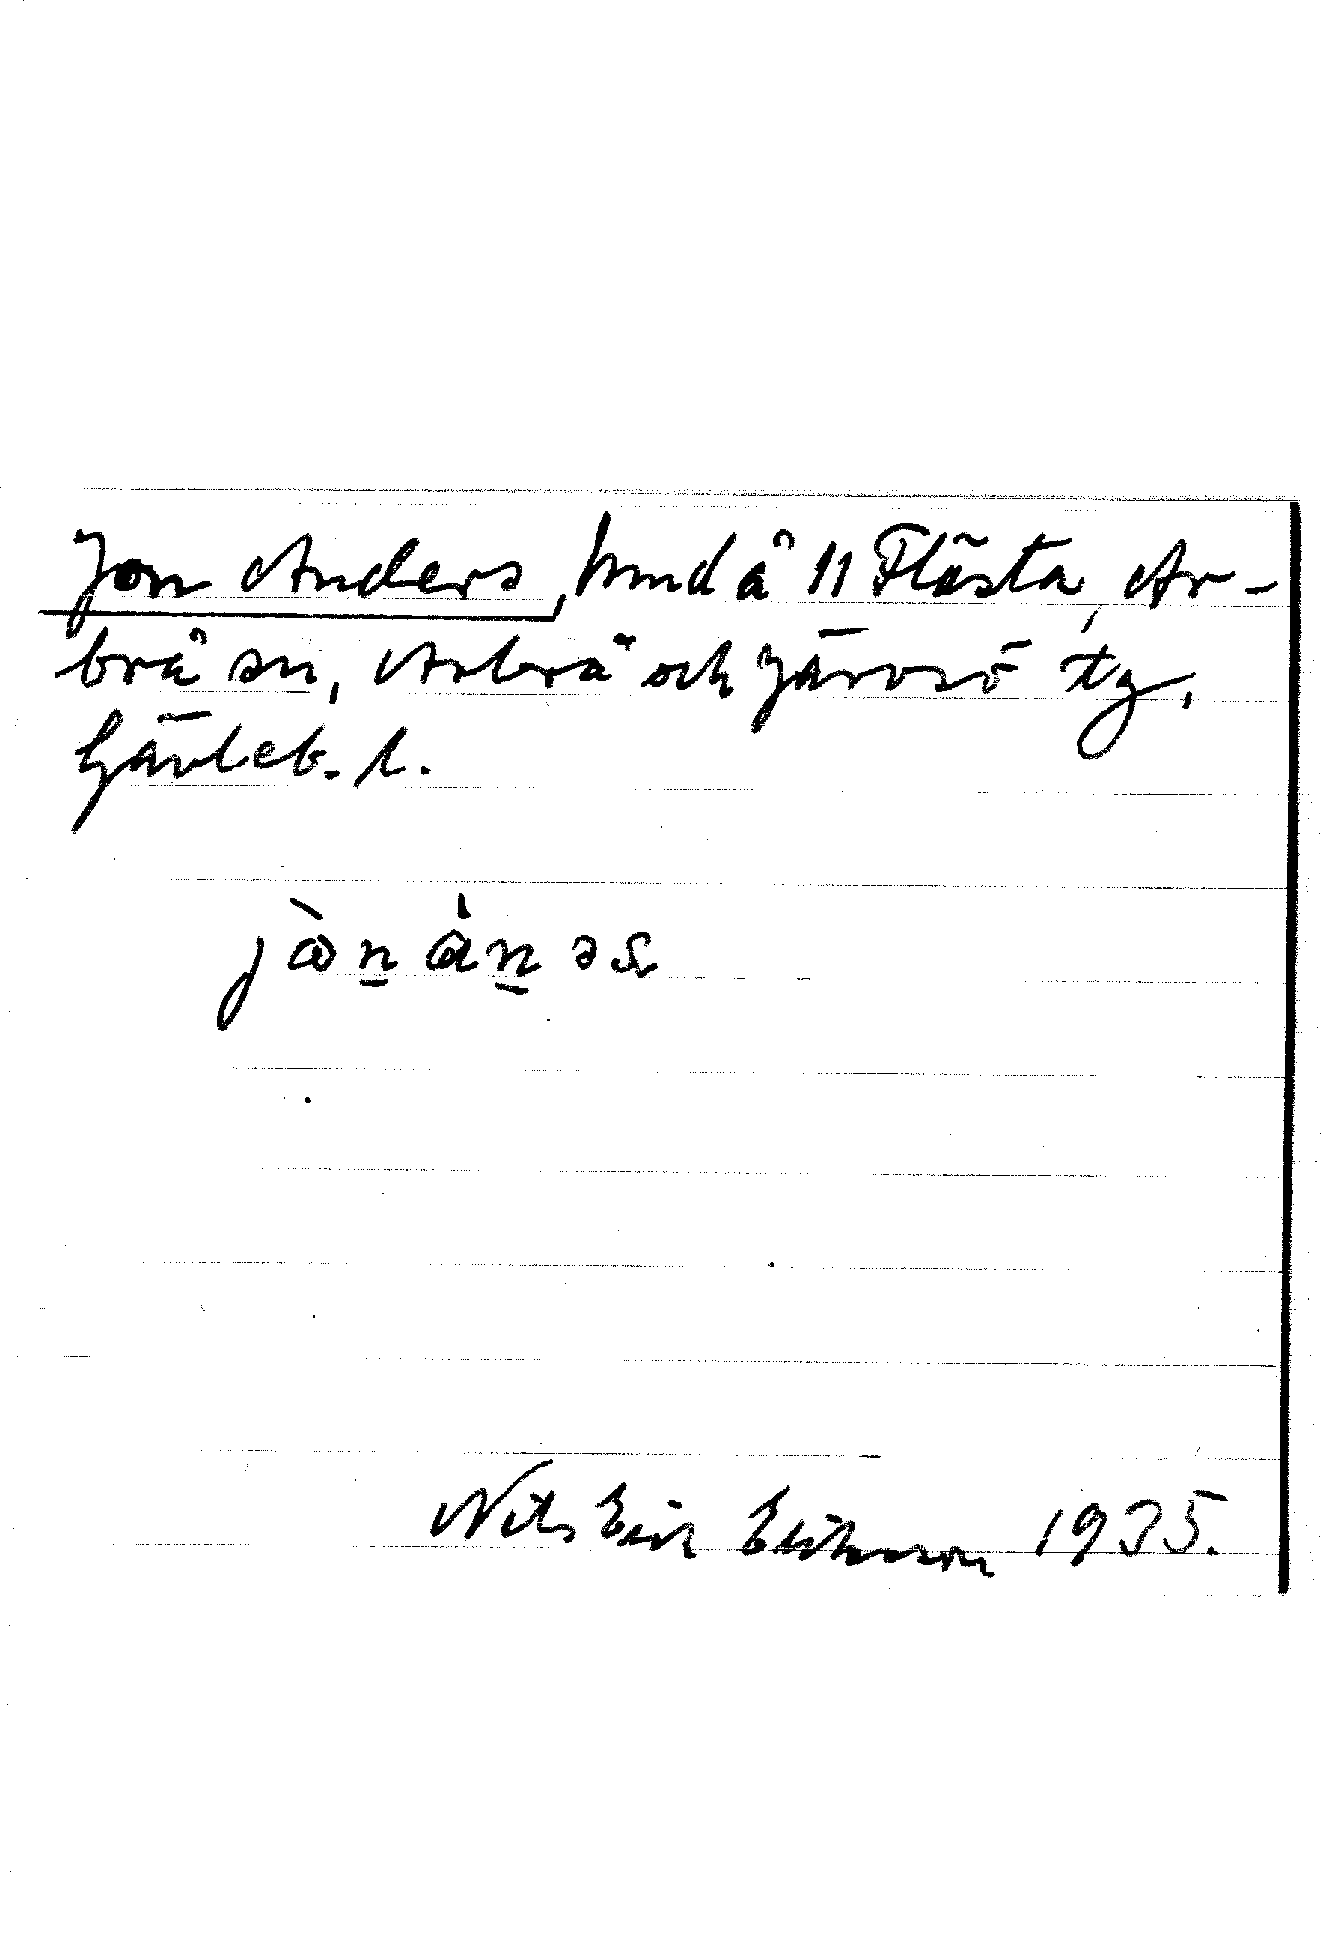 Jon Anders, hmd å 11 Flästa, Ar-
brå sn, Arbrå och Järvsö tg,
Gävleb. l.
jὼn̲ ȧn̲əs
Nils Eric Erikson 1935.